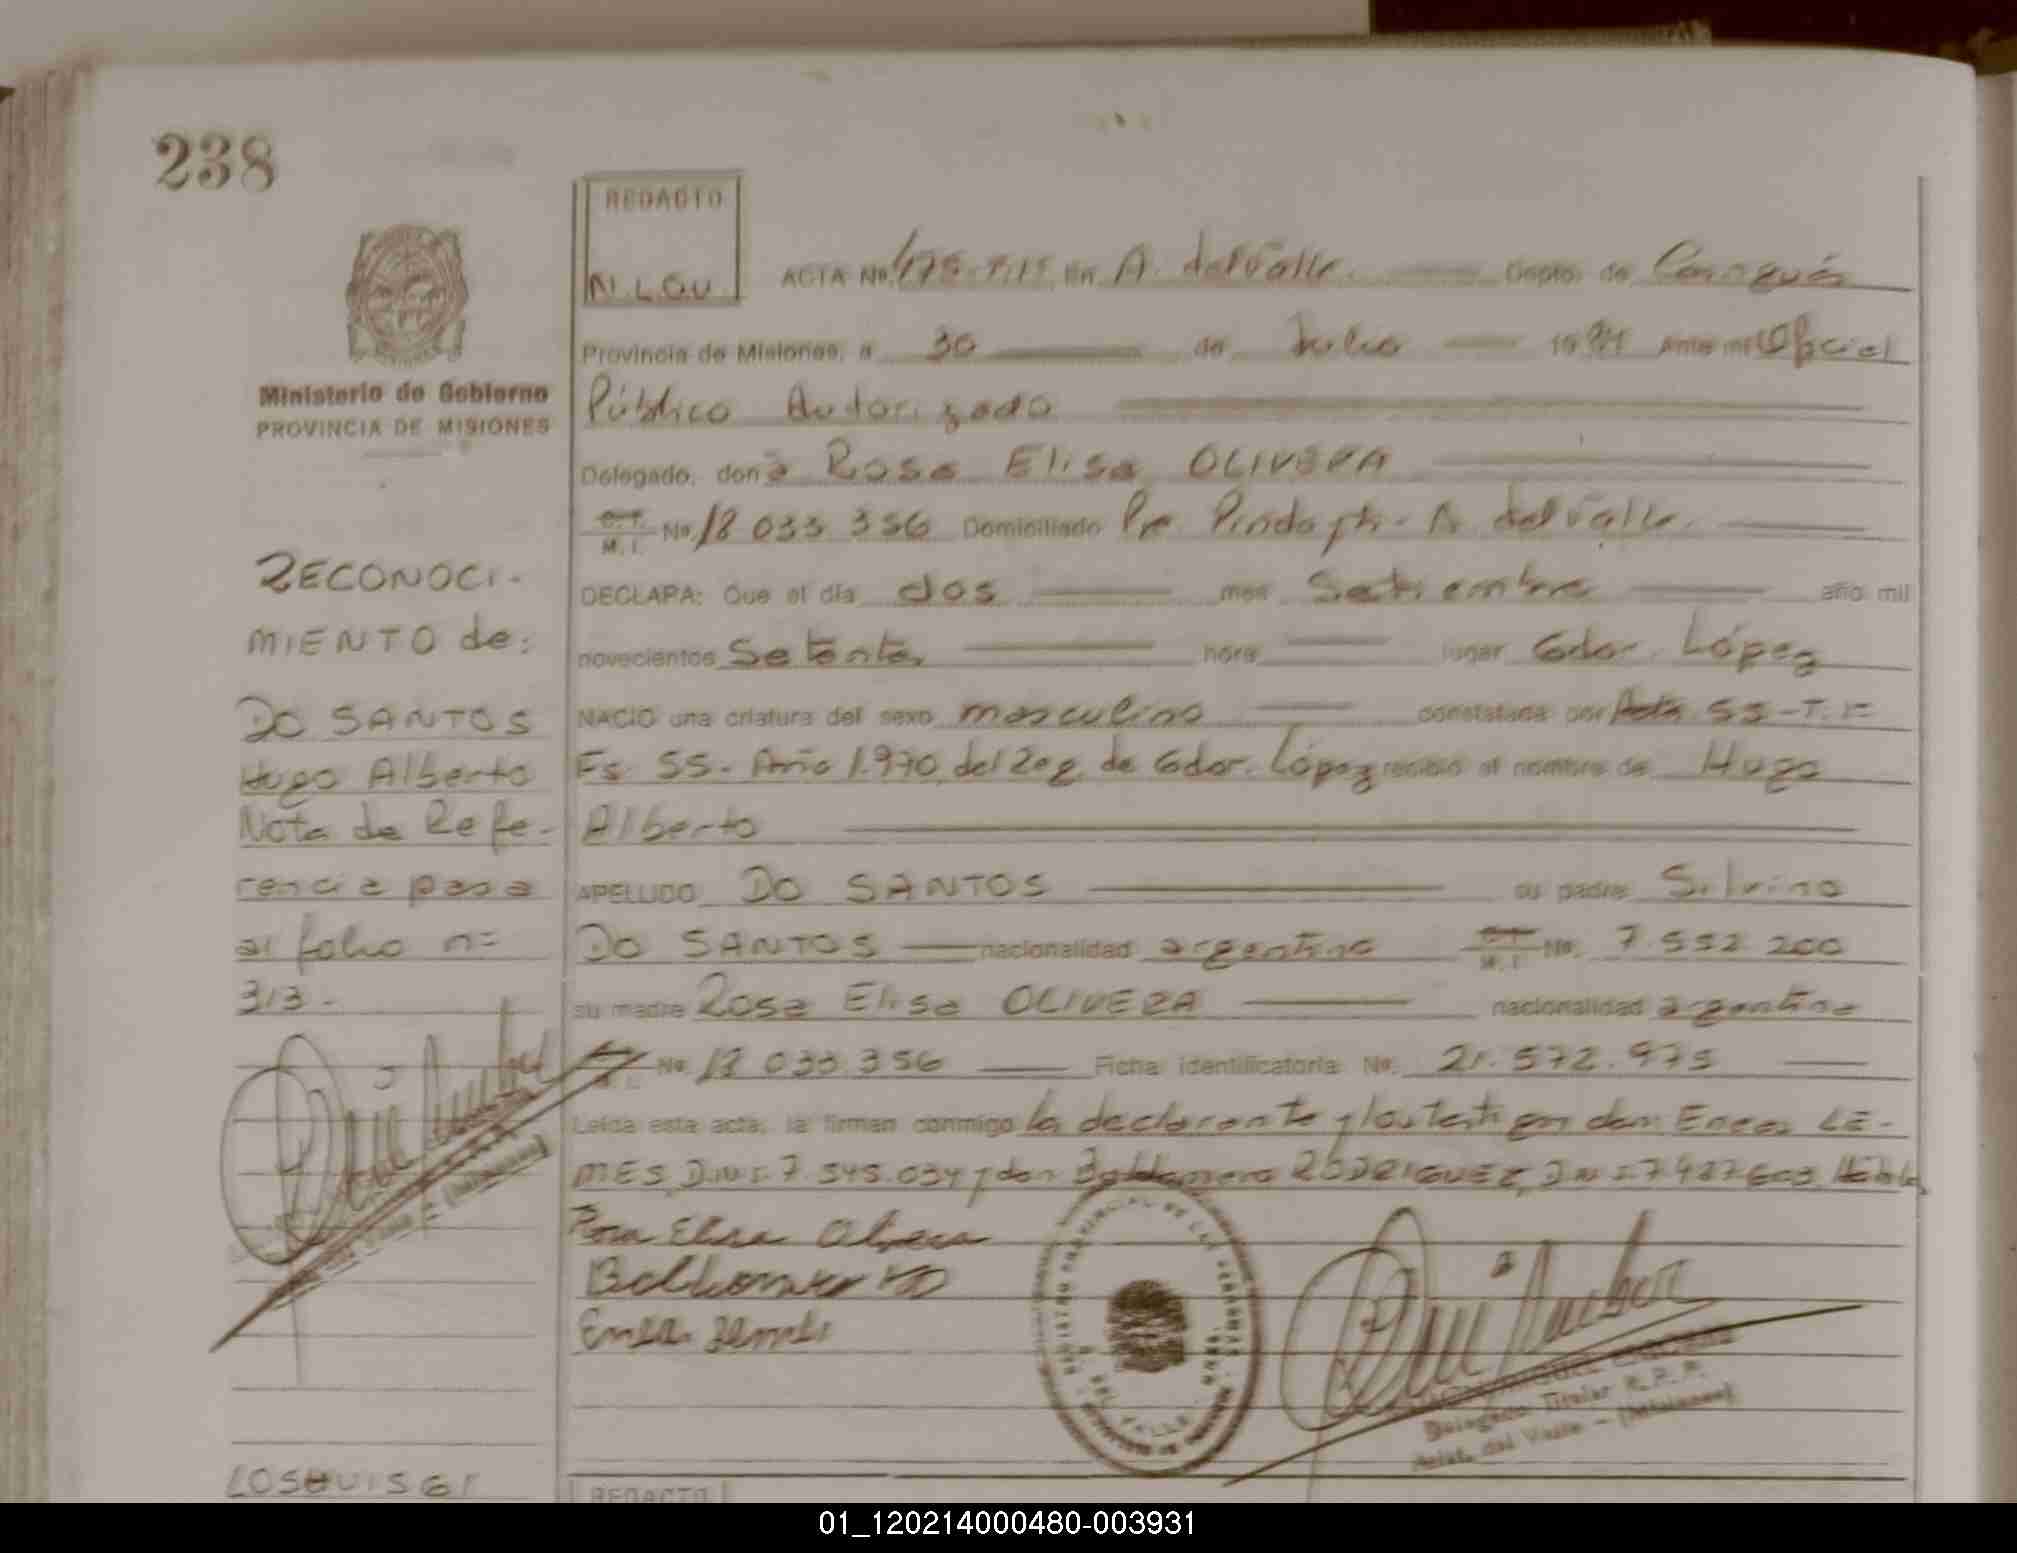 238
REDACTO
N.L.O.U.
ACTA No. 475-T.1º En A. del Valle. Depto. de Cainguás
Provincia de Misiones, a 30 de Julio 19 Ante mi Oficial
Público Autorizado
Delegado, doña Rosa Elisa OLIVERA
C.I. M.I. No. 18 033 356 Domiciliado A. del Valle.
DECLARA: Que el día dos mes Setiembre año mil
novecientos Setenta, hora lugar Gdor. López
NACIO una criatura del sexo masculino constatada por Acta 55-T. 1º
Fs. 55- Año 1.970, del Reg. de Gdor. López recibió el nombre de Hugo
Alberto
APELLIDO DO SANTOS su padre Silvino
DO SANTOS nacionalidad argentino C.I. M.I. No. 7.552 200
su madre Rosa Elisa OLIVERA nacionalidad argentina
M.I. No. 18 033.356 Ficha identificatoria No. 21.572.975
Leída esta acta, la firman conmigo la declarante y los testigos don: Eneas LE-
MES D.N.I. 7.545.034 y don Baldomero RODRIGUEZ, D.N.I. 7.487603
Rosa Elisa Olivera
Ministerio de Gobierno
PROVINCIA DE MISIONES
RECONOCI-
MIENTO de:
DO SANTOS
Hugo Alberto
Nota de Refe-
rencia pasa
al folio nº
313.
Delegado Titular R.P.P.
Arist. del Valle - (Misiones)
REDACTO
01_120214000480-003931